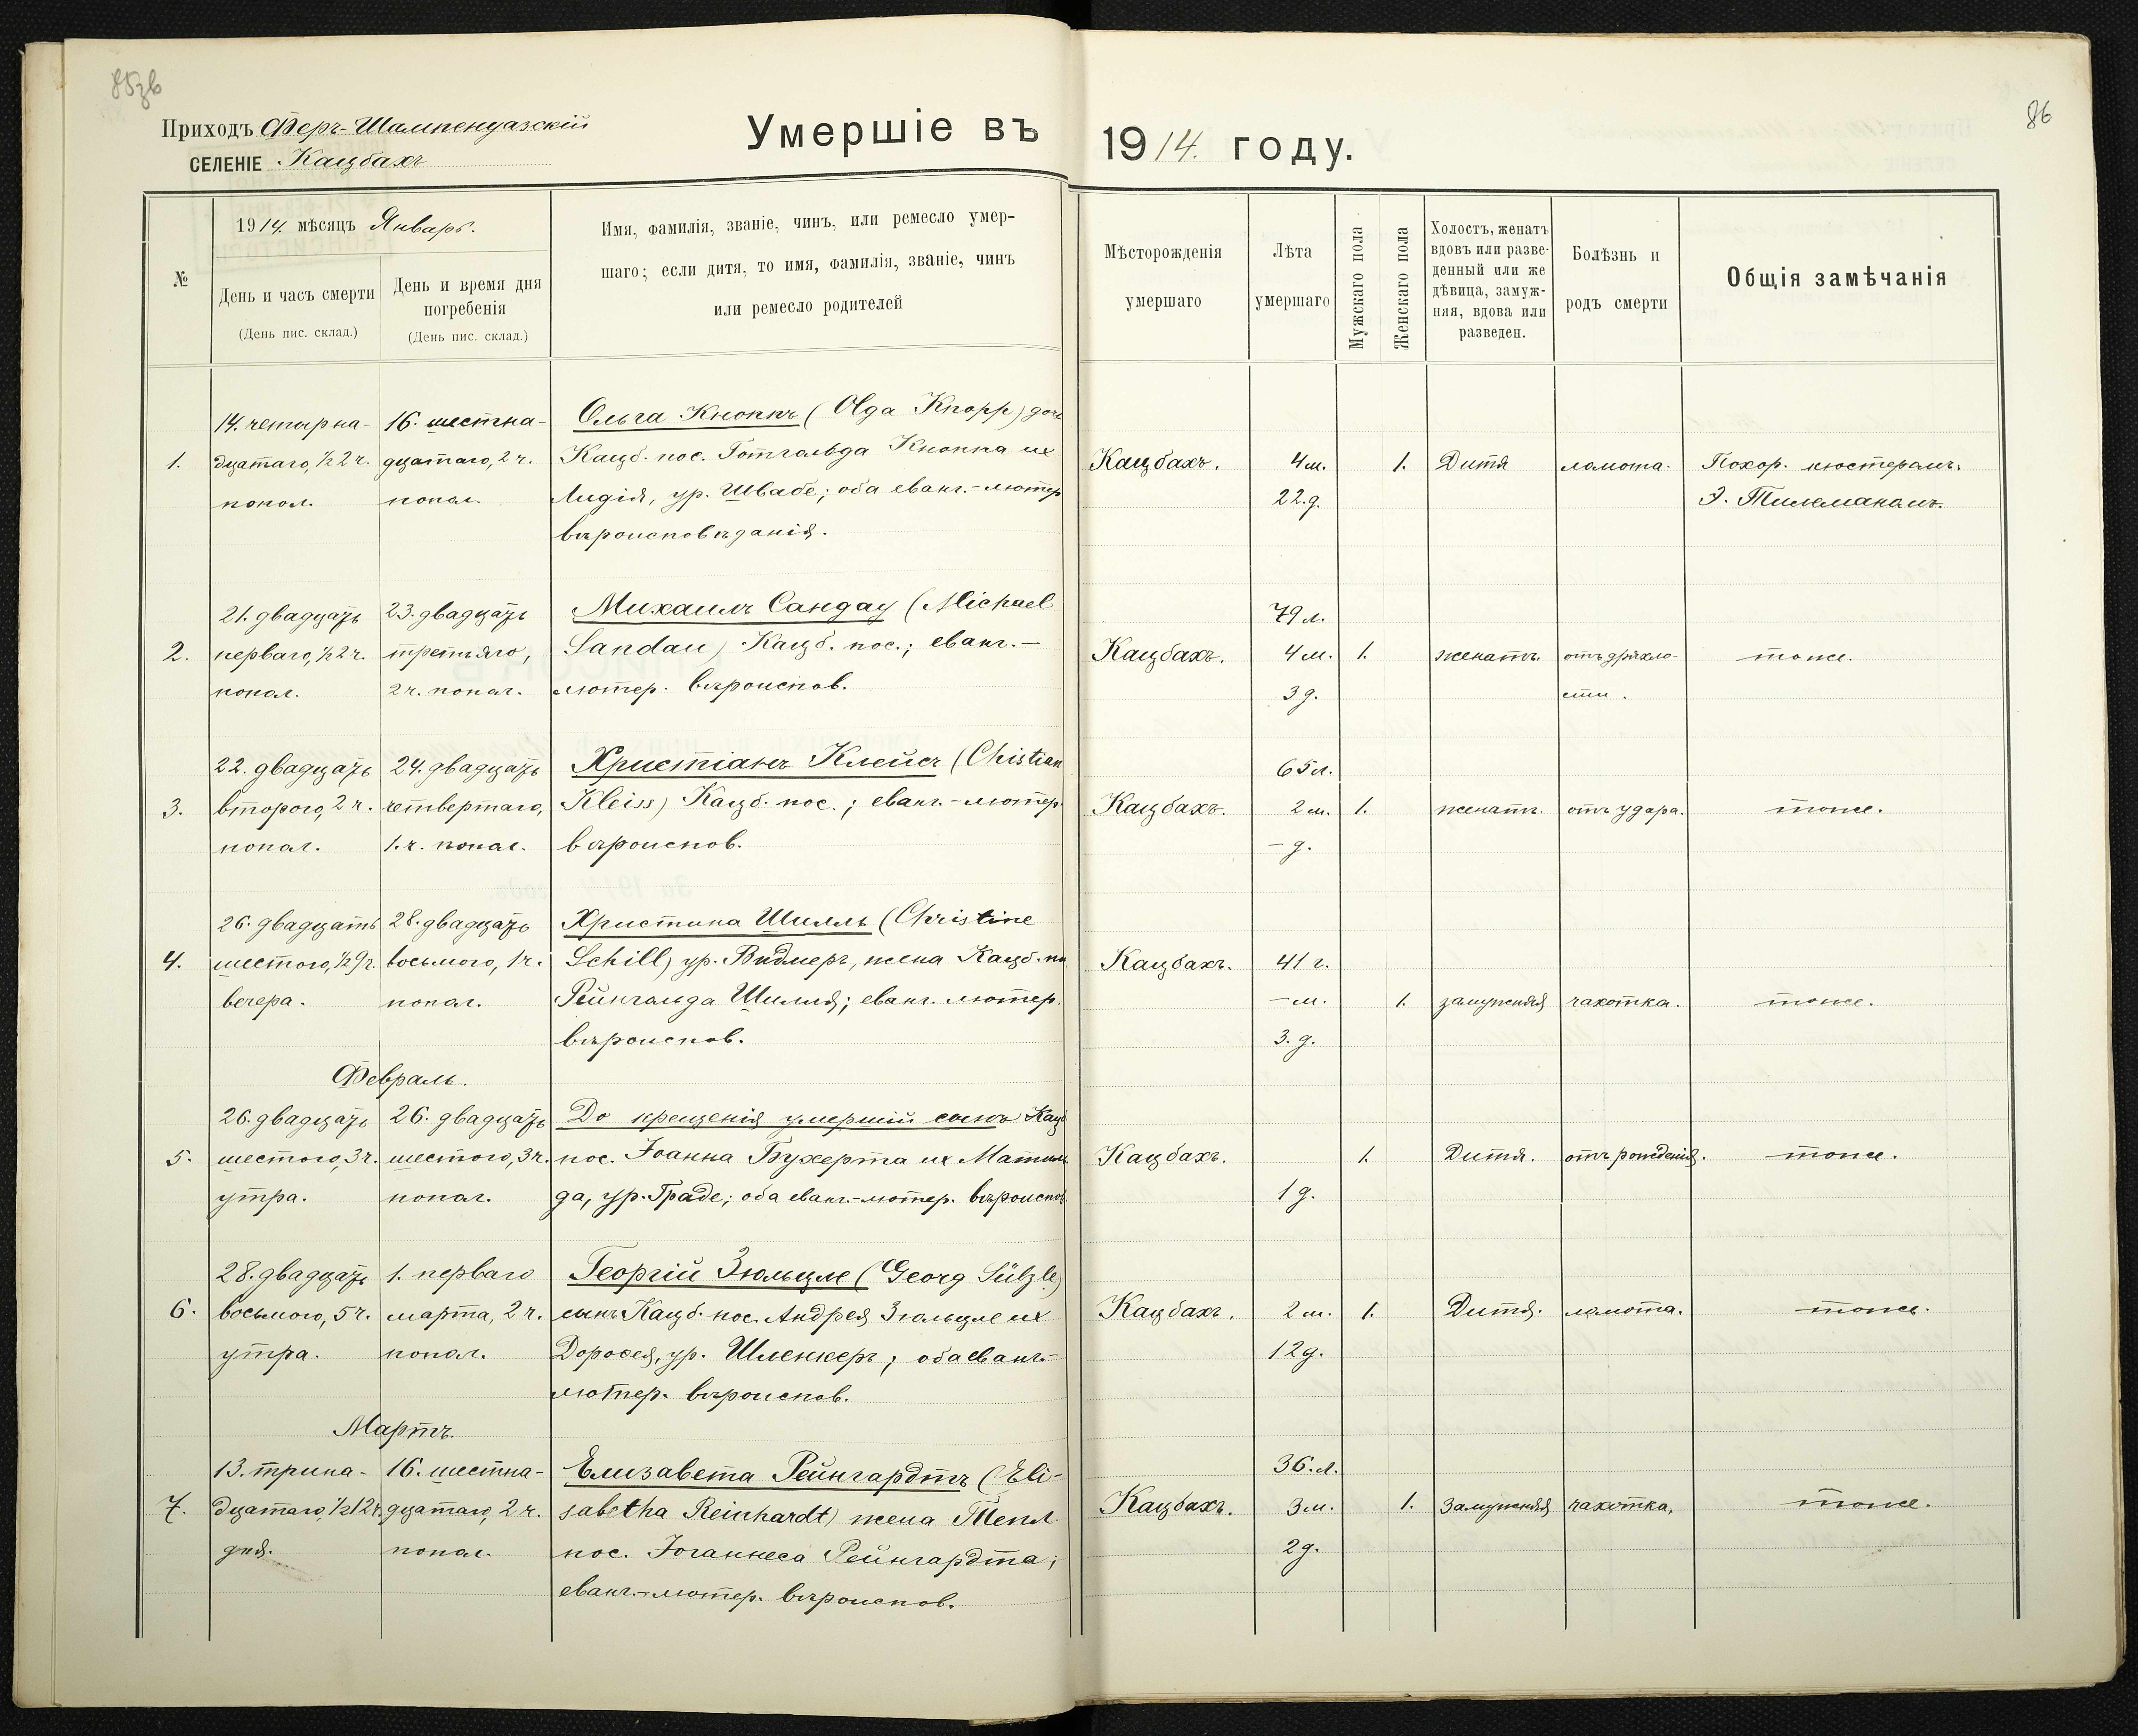 85зв
86
Приходъ Феръ-Шампенуазскій
СЕЛЕНІЕ Кацбахъ
Умершіе въ 1914. году.
№
1914. мѣсяцъ Январь.
День и часъ смерти
(День пис. склад.)
День и время дня
погребенія
(День пис. склад.)
Имя, фамилія, званіе, чинъ, или ремесло умер-
шаго; если дитя, то имя, фамилія, званіе, чинъ
или ремесло родителей
Мѣсторожденія
умершаго
Лѣта
умершаго
Мужскаго пола
Женскаго пола
Холостъ, женатъ
вдовъ или разве-
денный или же
дѣвица, замуж-
няя, вдова или
разведен.
Болѣзнь и
родъ смерти
Общія замѣчанія
1.
14. четырна-
дцатаго, ½2 ч.
попол.
16. шестна-
дцатаго, 2 ч.
попол.
Ольга Кноппъ (Olga Knopp) дочь
Кацб. пос. Готгольда Кноппа и
Лидія, ур. Швабе; оба еванг.-лютер
вѣроисповѣданія.
Кацбахъ.
4 м.
22. д.
1.
Дитя
ломота.
Похор. кюстеромъ.
Э. Тилманомъ.
2.
21. двадцать
перваго, ½2 ч.
попол.
23. двадцать
третьяго,
2 ч. попол.
Михаилъ Сандау (Michael
Sandau) Кацб. пос.; еванг.-
лютер. вѣроиспов.
Кацбахъ.
79 л.
4 м.
3 д.
1.
женатъ.
отъ дряхло-
сти.
тоже.
3.
22. двадцать
второго, 2 ч.
попол.
24. двадцать
четвертаго,
1. ч. попол.
Христіанъ Клейсъ (Chistian
Kleiss) Кацб. пос.; еванг.-лютер.
вѣроиспов.
Кацбахъ.
65 л.
2 м.
- д.
1.
женатъ.
отъ удара.
тоже.
4.
26. двадцать
шестого, ½9 ч.
вечера.
28. двадцать
восьмого, 1 ч.
попол.
Христина Шилль (Christine
Schill) ур. Видмеръ, жена Кацб. по
Рейнгольда Шилля; еванг. лютер.
вѣроиспов.
Кацбахъ.
41 г.
- м.
3. д.
1.
замужняя
чахотка.
тоже.
Февраль.
5.
26. двадцать
шестого, 3 ч.
утра.
26. двадцать
шестого, 3 ч.
попол.
До крещенія умершій сынъ Кацб
пос. Іоанна Бухерта и Матиль
да, ур. Граде; оба еванг.-лютер. вѣроиспов.
Кацбахъ.
1 д.
1.
Дитя.
отъ рожденія.
тоже.
6.
28. двадцать
восьмого, 5 ч.
утра.
1. перваго
марта, 2 ч.
попол.
Георгій Зюльцле (Georg Sülzle)
сынъ Кацб. пос. Андрея Зюльцле и
Доросея, ур. Шленкеръ; оба еванг.-
лютер. вѣроиспов.
Кацбахъ.
2 м.
12 д.
1.
Дитя.
ломота.
тоже.
Мартъ.
7.
13. трина-
дцатаго, ½12 ч.
дня.
16. шестна-
дцатаго, 2 ч.
попол.
Елизавета Рейнгардтъ (Eli-
sabetha Reinhardt) жена Тепл.
пос. Іоганнеса Рейнгардта;
еванг.-лютер. вѣроиспов.
Кацбахъ.
36. л.
3 м.
2 д.
1.
Замужняя
чахотка,
тоже.